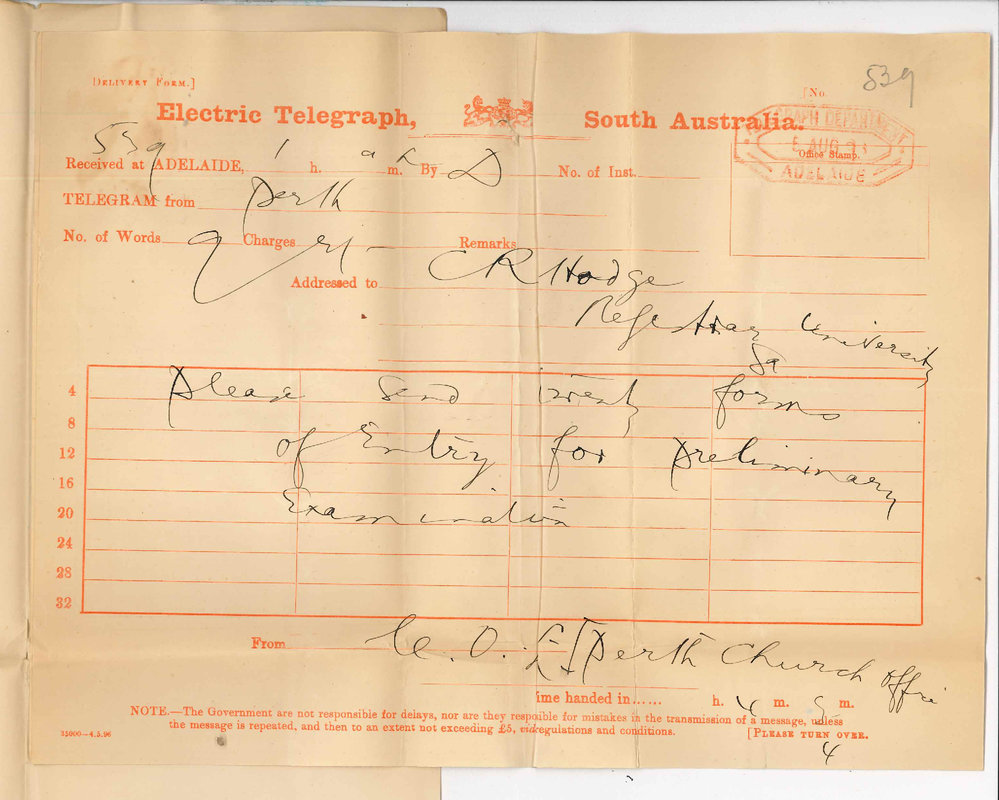 539
[DELIVERY FORM.]
[No.
Electric Telegraph, South Australia.
TELEGRAPH DEPARTMENT
6 AUG
ADELAIDE
Office Stamp.
539
Received at ADELAIDE, 1 h. m. By D No. of Inst.
TELEGRAM from Perth
No. of Words 9 Charges Remarks
Addressed to C R Hodge
Registrar University
Sa
4 Please Send twenty forms
8
12 of Entry for preliminary
16
20 Examination
24
28
32
From C. O. Perth Church Office
ime handed in...... h. 4 m. m.
NOTE.—The Government are not responsible for delays, nor are they respoible for mistakes in the transmission of a message, unless
the message is repeated, and then to an extent not exceeding £5, vide regulations and conditions. [PLEASE TURN OVER.
35000—4.5.96
4